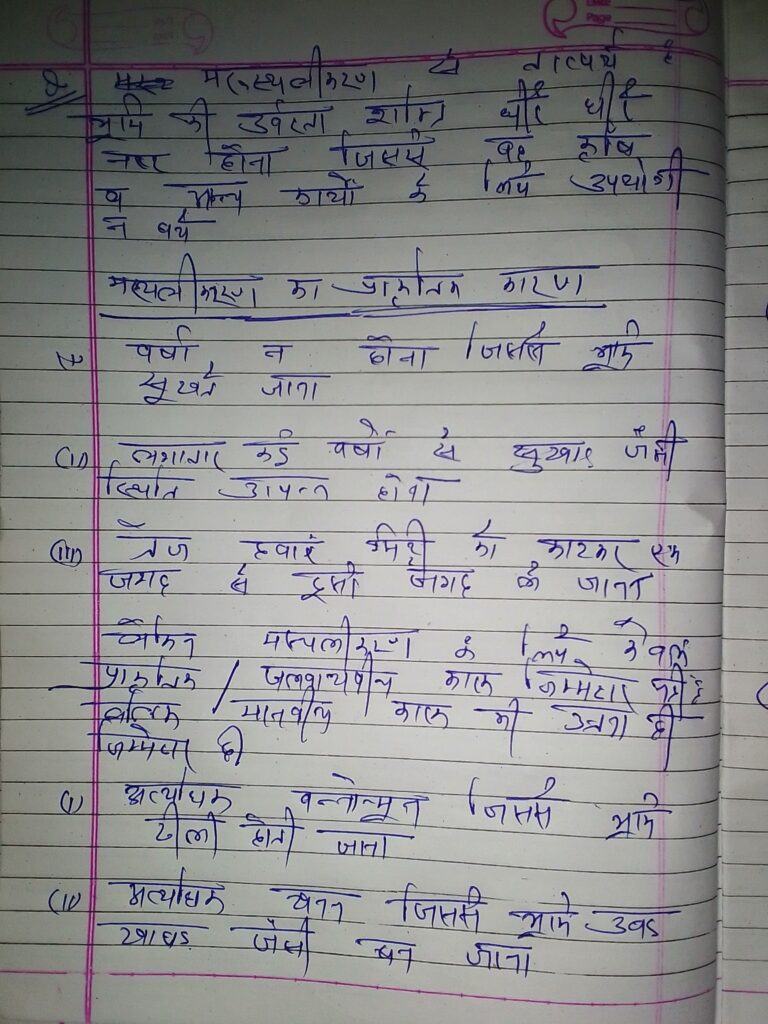 मरुस्थलीकरण से तात्पर्य है
भूमि की उर्वरता शक्ति धीरे धीरे
नष्ट होना जिससे वह कृषि
व अन्य कार्यों के लिये उपयोगी
न बचे
मरुस्थलीकरण का प्राकृतिक कारण
वर्षा न होना जिससे भूमि
सूखते जाना
(ii) लगातार कई वर्षों से सुखाड़ जैसी
स्थिति उत्पन्न होना
(iii) तेज हवाएं मिट्टी को काटकर एक
जगह से दूसरी जगह ले जाना
लेकिन मरुस्थलीकरण के लिये केवल
प्राकृतिक / जलवायवीय कारक जिम्मेदार नहीं है
बल्कि मानवीय कारक भी उतना ही
जिम्मेदार है
(i) अत्यधिक वनोन्मूलन जिससे भूमि
ढीली होती जाना
(ii) अत्यधिक खनन जिससे भूमि उबड़
खाबड़ जैसी बन जाना